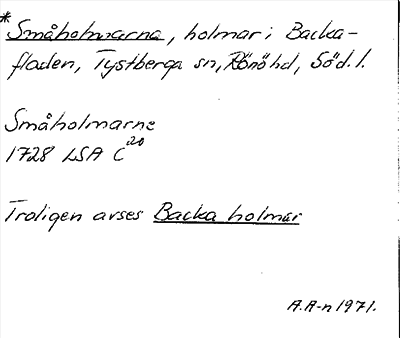 * Småholmarna, holmar i Backa-
fladen, Tystberga sn, Rönö hd, Söd. l.
Småholmarne
1728 LSA C 20
Troligen avses Backa holmar
A.A-n 1971.